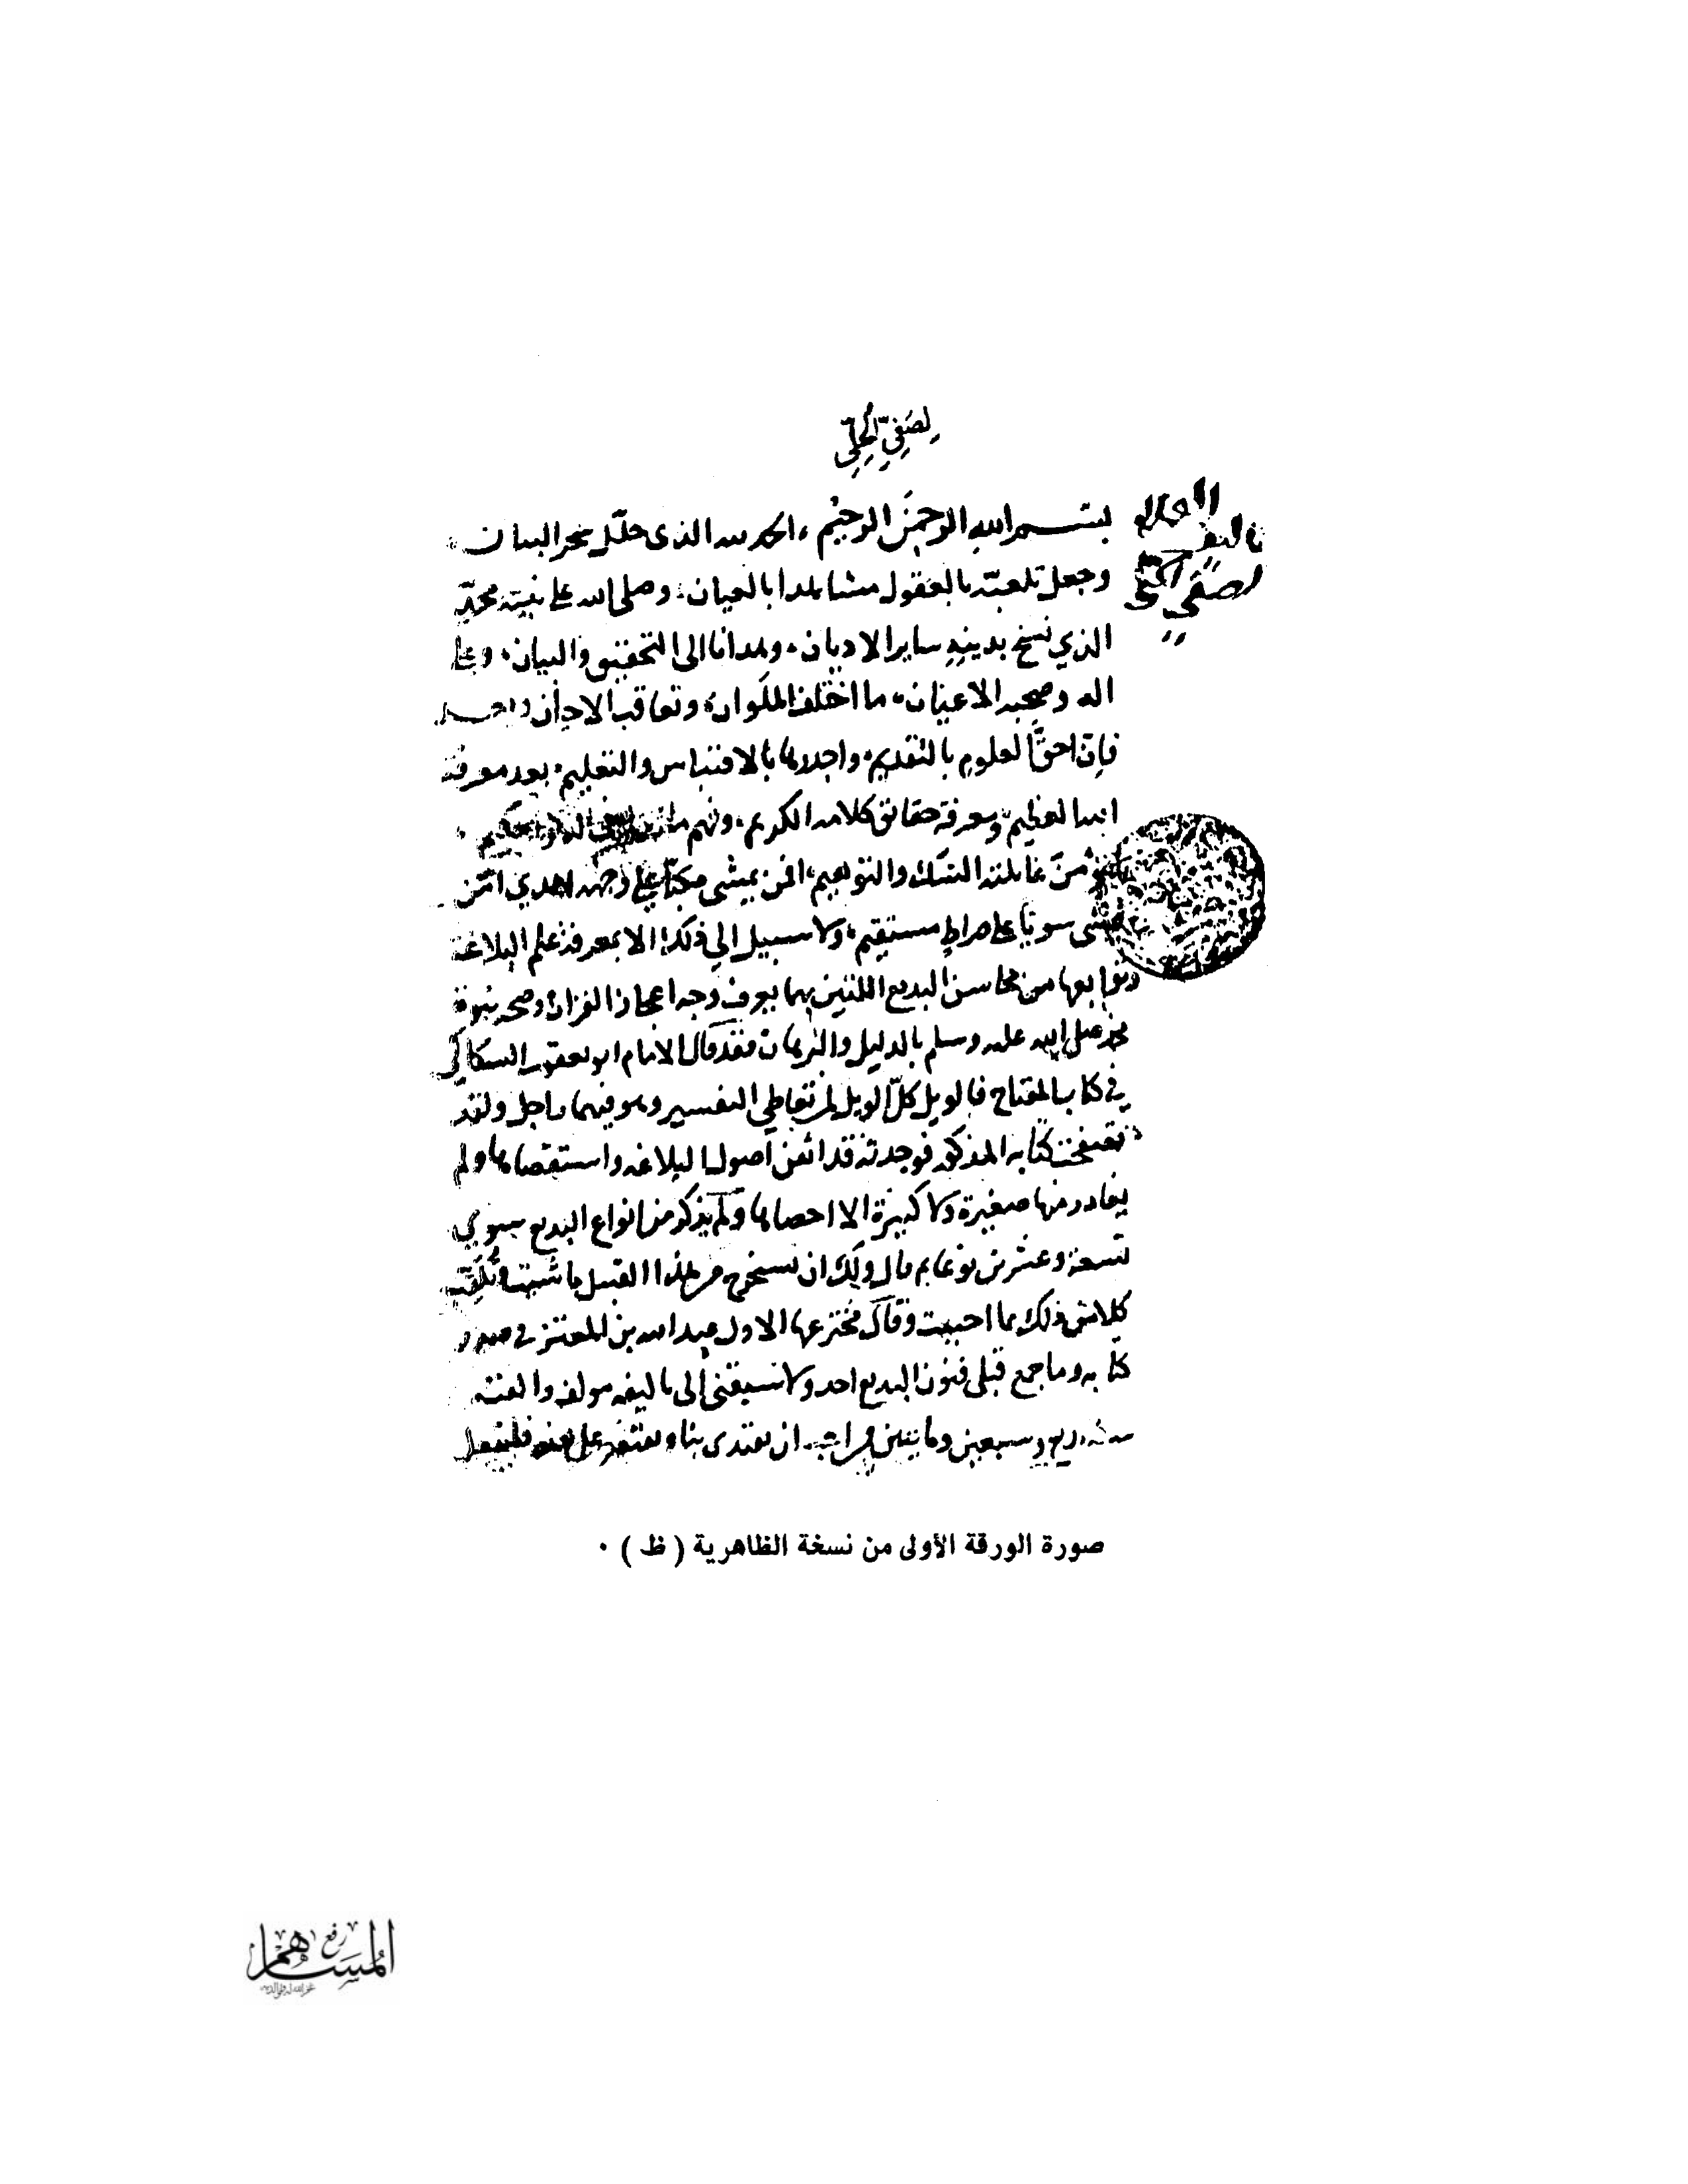 لصفي الحلي
بسم الله الرحمن الرحيم ، الحمد لله الذى حلّل سحر البيان
وجعل تلعبه بالعقول مشاهدا بالعيان ، وصلى الله على نبيّه محمّد
الذي نسخ بدينه ساير الاديان ، وهدانا الى التحقيق والبيان ، وعلى
اله وصحبه الاعيان ، ما اختلف الملوان ، وتعاقب الاحيان
فإنّ احقّ العلوم بالتقديم ، واجدرها بالاقتباس والتعليم ، بعد معرفة
الله العظيم ، ومعرفة حقائق كلامه الكريم ، وفهم ما
غائلة الشك والتوهيم ، افمن يمشى مكبّا على وجهه اهدي امّن
يمشى سويّا على صراط مستقيم ، ولا سبيل الي ذلك الا بمعرفة علم البلاغة
وتوابعها من محاسن البديع اللتين بهما يعرف وجه اعجاز القران وصحة نبوة
محمد صلى الله عليه وسلم بالدليل والبرهان فقد قال الامام ابو يعقوب السكاكي
في كتاب المفتاح فالويل كلّ الويل لمن تعاطي التفسير وهو فيهما راجل ولقد
تصفحت كتابه المذكور فوجدته قد اتقن اصول البلاغه واستقصاها ولم
يغادر منها صغيرة ولا كبيرة الا احصاها ولم يذكر من انواع البديع سوي
تسعة وعشرين نوعا ثم قال ولك ان تستخرج من هذا القبيل ما شيت وتلقب
كلا من ذلك بما احببت وقال مخترعها الاول عبد الله بن المعتز في صدر
كتابه وما جمع قبلى فنون البديع احد ولا سبقنى إلى تاليفه مولف والفته
سنة اربع وسبعين ومايتين فمن احب ان يقتدى بنا ويقتصر على هذه فليفعل
صورة الورقة الأولى من نسخة الظاهرية ( ظ ) ٠
رفع
المساهم
غفر الله له ولوالديه